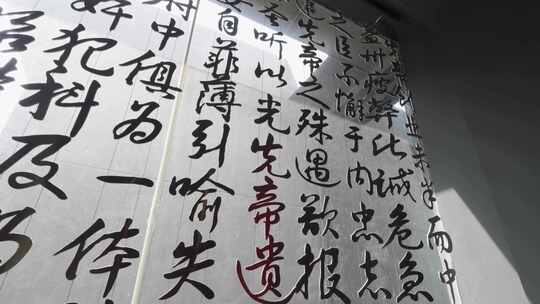 创业未半而中
益州疲弊此诚危急
之臣不懈于内忠志
追先帝之殊遇欲报
圣听以光先帝遗
妄自菲薄引喻失
府中俱为一体
奸犯科及